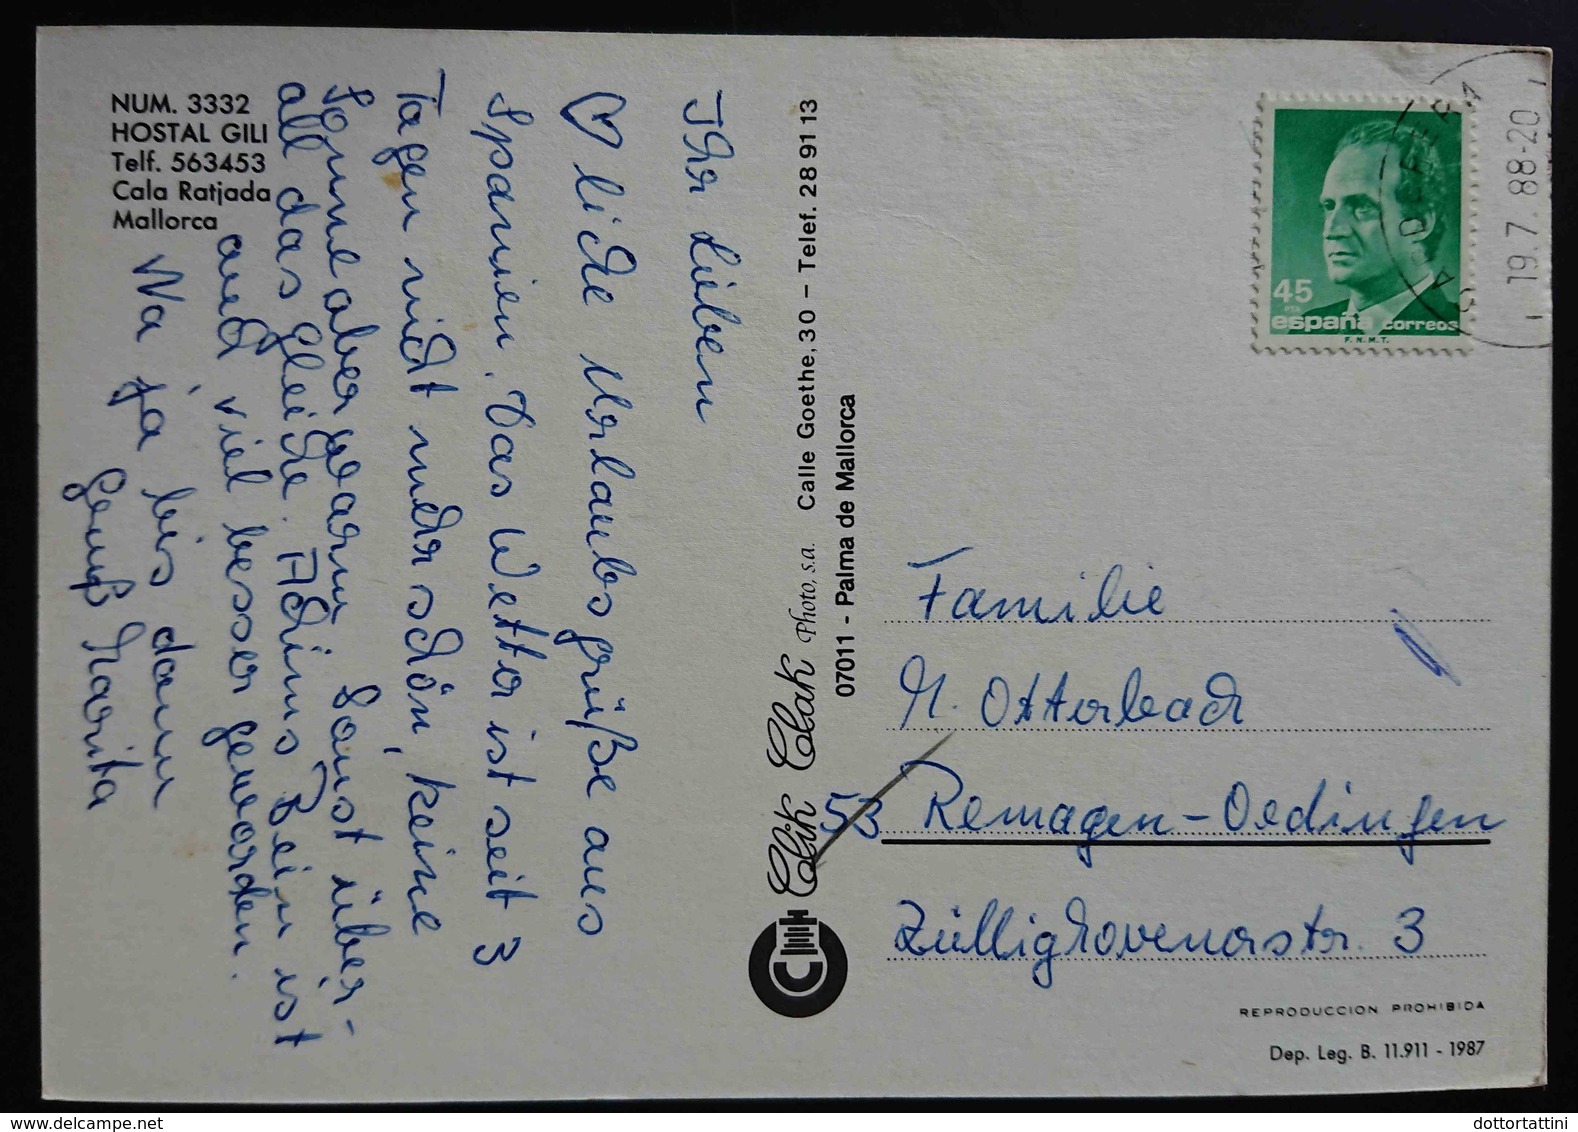 NUM. 3332
HOSTAL GILI
Telf. 563453
Cala Ratjada
Mallorca
Ihr Lieben
♡ liche Urlaubsgrüße aus
Spanien. Das Wetter ist seit 3
Tagen nicht mehr schön, keine
Sonne aber warm. Sonst über-
all das gleiche. Achims Bein ist
auch viel besser geworden.
Na ja bis dann
Gruß Marita
Clik Clak Photo, s.a. Calle Goethe, 30 - Telef. 28 91 13
07011 - Palma de Mallorca
45
PTA
españa correos
F.N.M.T.
19.7.88-20
Familie
M. Otterbach
53 Remagen-Oedingen
Züllighovenerstr. 3
REPRODUCCION PROHIBIDA
Dep. Leg. B. 11.911 - 1987
dottortattini